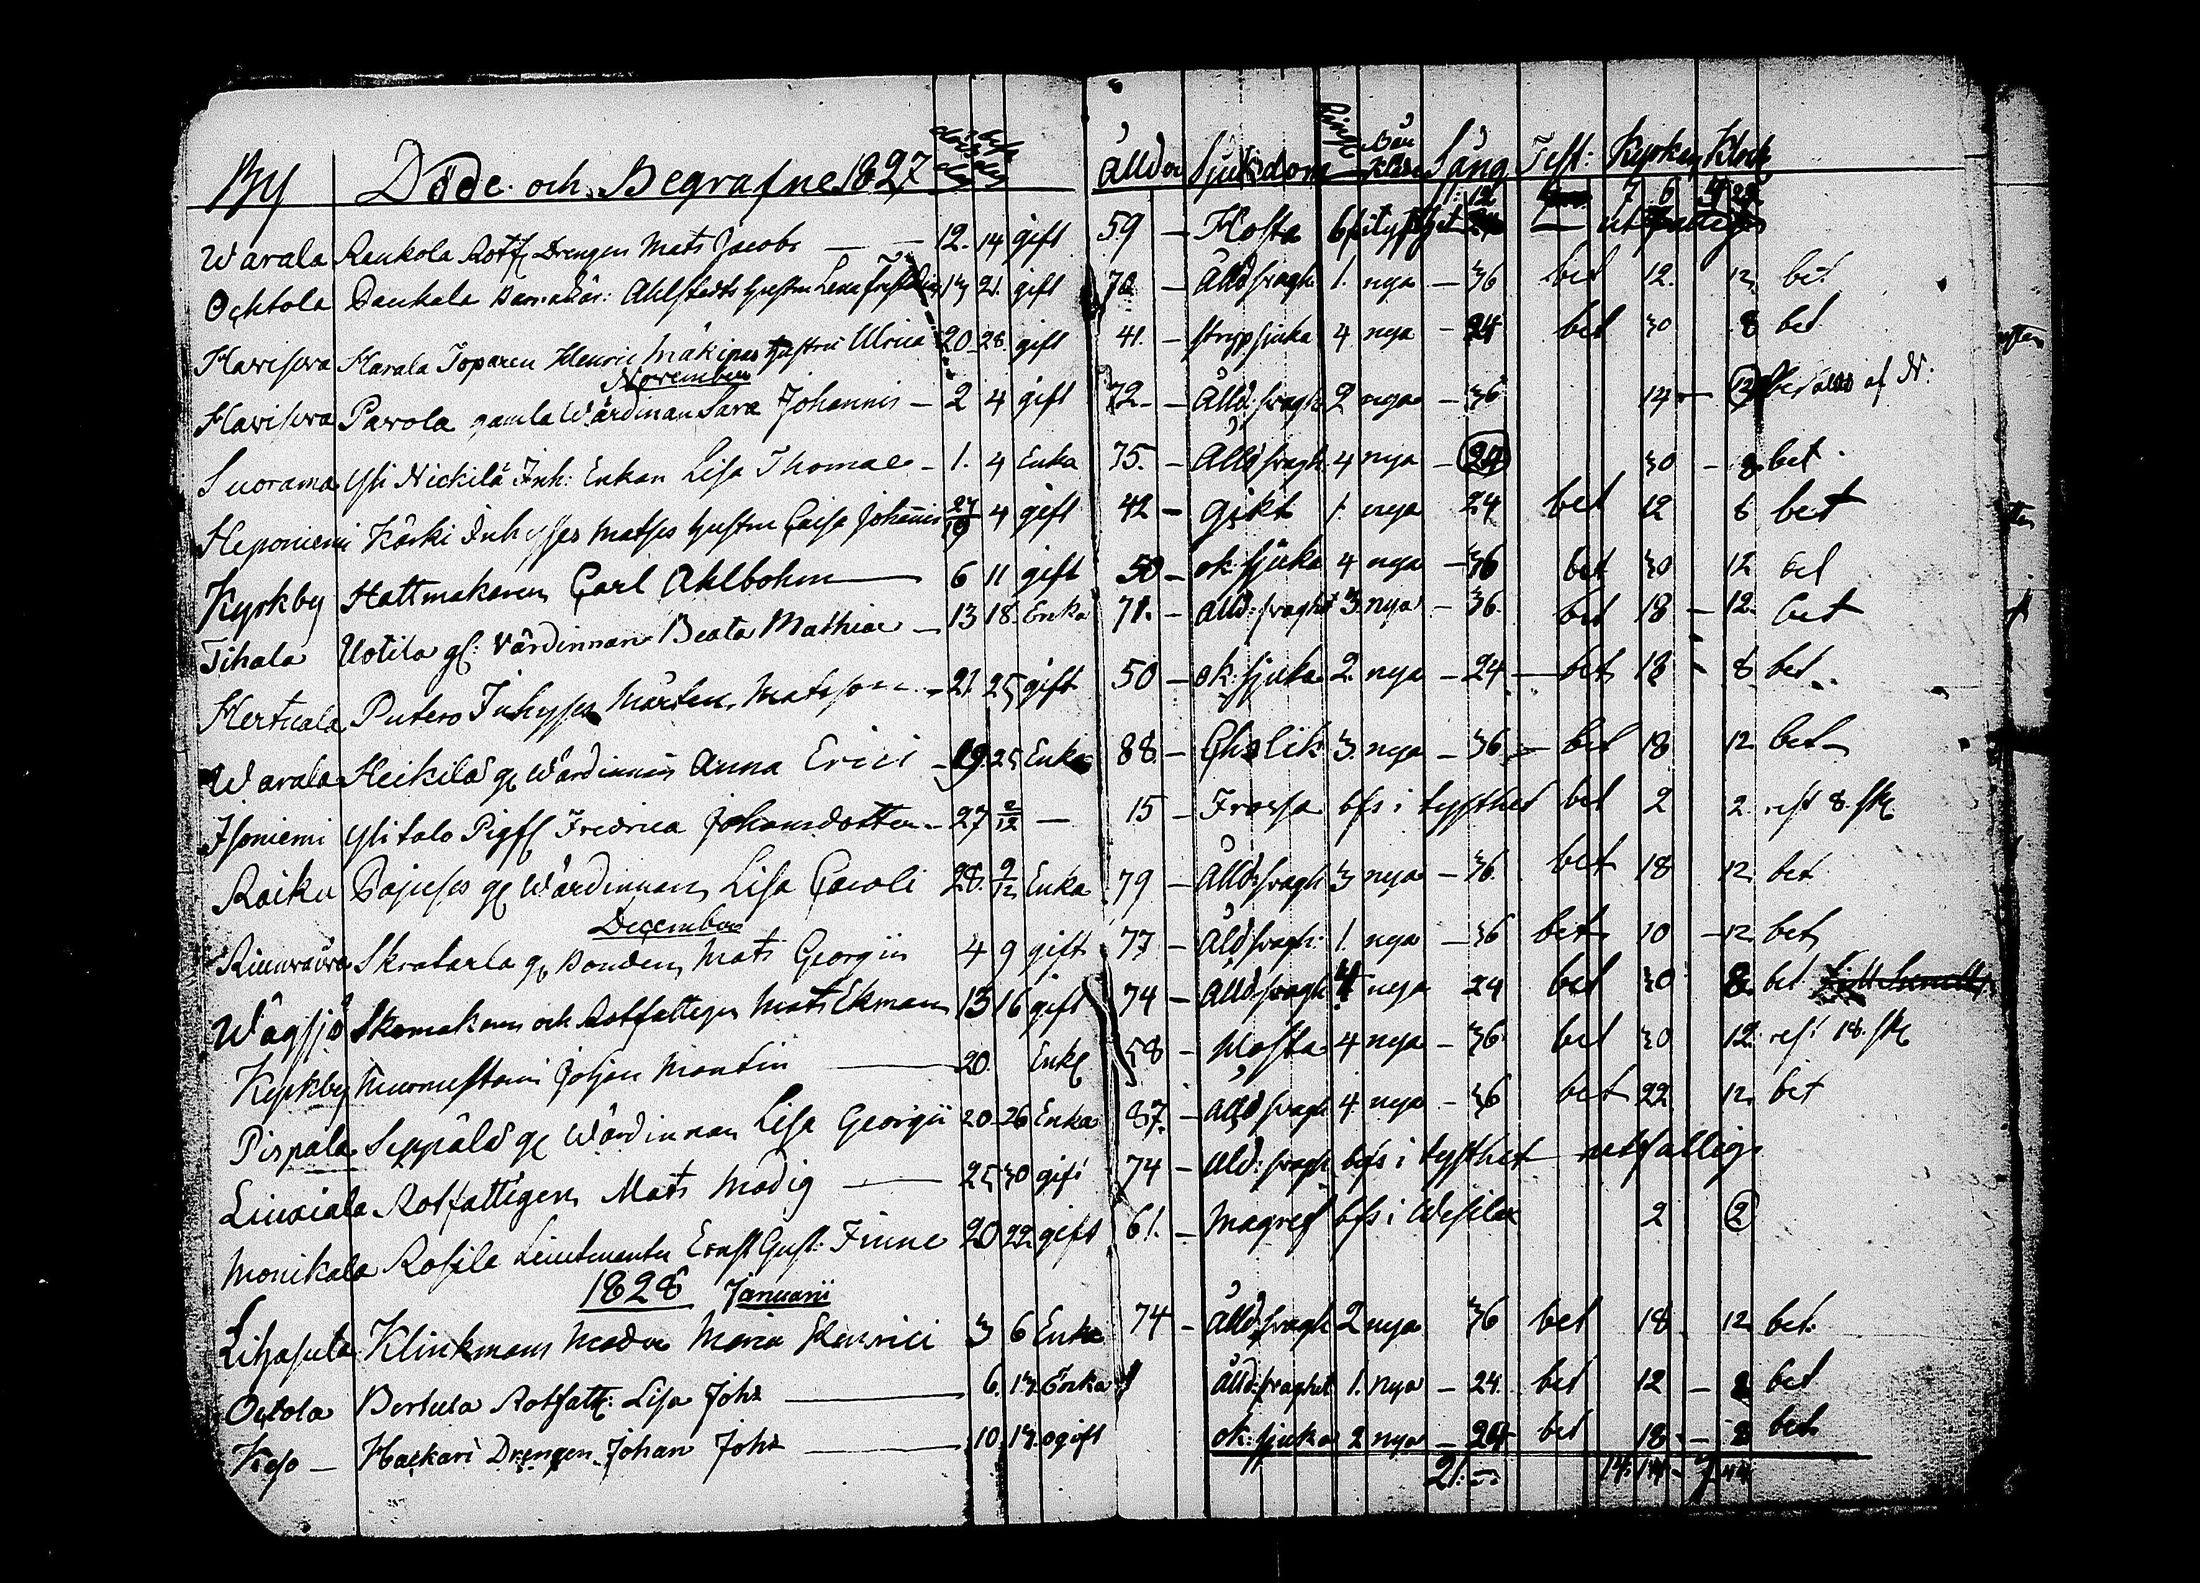 By Döde och Begrafne 1827 Ålld Sjukdom Sång Test: Kyrkan Klock
1: 12 7 6 4 22
Warala Raukola Rotf Drengen Mats Jacobs — — 12. 14 gift 59 — Hosta i tysthet
Ochtola Daukala Ahlstedts hustru Lena 13 21. gift 70 — Ålld svagh. 1. nya — 36 bet 12. 12 bet
Havisova Harala Toparen Henric Mäkipäs hustru Ulrica 20. 28. gift 41. — strypsjuka 4 nya — 24 bet 30 8 bet
November
Havisova Pavola gamla Wärdinnan Sara Johannis — 2 4 gift 72 — Ålld: svagh 2 nya — 36 14 — 12 betalas af N:
Suorama Yli Nickilä Inh: Enkan Lisa Thomae — 1. 4 Enka 75. — Ålld svagh. 4 nya — 24 30 — 8 bet
Heponiemi Kärki Inhyses Matses hustru Caisa Johannis 27/10 4 gift 42 — Gikt 1. nya 24 bet 12 8 bet
Kyrkby Hattmakaren Carl Ahlbohm — 6 11 gift 50 — ok: sjuka 4 nya — 36 bet 30 12 bet
Tihala Uotila gl: Värdinnan Beata Mathiae — 13 18. Enka 71. — ålld: svaghet 3. nya — 36. bet 18 — 12. bet
Hertuala Putero Inhyses Mårten Matsson — 21. 25 gift 50 — ok: sjuka 2. nya — 24 — bet 18 — 8 bet
Warala Heikilä gl Wärdinnan Anna Erici — 19. 25 Enka 88. — Cholik 3. nya — 36 — bet 18 12 bet —
Isoniemi Yli talo Pig Fredrica Johansdotter — 27 2/12 — 15 — Frossa bfs i tysthet bet 2 2 rest 8. sk
Raiku Pajuses gl Wärdinnan Lisa Caroli 28. 2/12 Enka 79 — Ålld: svagh 3 nya — 36. bet 18 12 bet
December
Skratarla gl Bonden Mats Georgii 4 9 gift 77 — Åld svagh: 1. nya — 36 bet 10 — 12 bet
Wägsjö Skomakaren och Rotfattigen Mats Ekman 13 16 gift 74 — Ålld: svagh 4 nya 24 bet 30 8 bet
Kyrkby Murmestarn Johan Martin — 20. Enkl 58 — Hosta 4 nya — 36 bet 30 12 rest 18. sk
Pispala Seppälä gl Wärdinnan Lisa Georgii 20 — 26 Enka 87. — Ålld svagh 4. nya — 36 bet 22 12 bet
Liuxiala Rotfattigen Mats Modig — 25 30 gift 74 — Åld: svagh bfs i tysthet rotfattig
Monikala Rosila Lieutnanten Ernst Gust: Finne 20 22 gift 61. — Magref bfs i Wesilax 2 2
1828 Januarii
Lihasula Klinkmans Moder Maria Henrici 3 6 Enka 74 — Ålld svagh 2 nya 36 bet 18 12 bet.
Octola Bertula Rotfatt: Lisa Johs — 6. 13. Enka Ålld: svaghet 1. nya — 24. bet 12 — 2 bet
Keso — Hackari Drengen Johan Johs — 10 13. ogift ok: sjuka 2 nya — 24 bet 18 — 2 bet
21.—. 14. 14 — 7 44